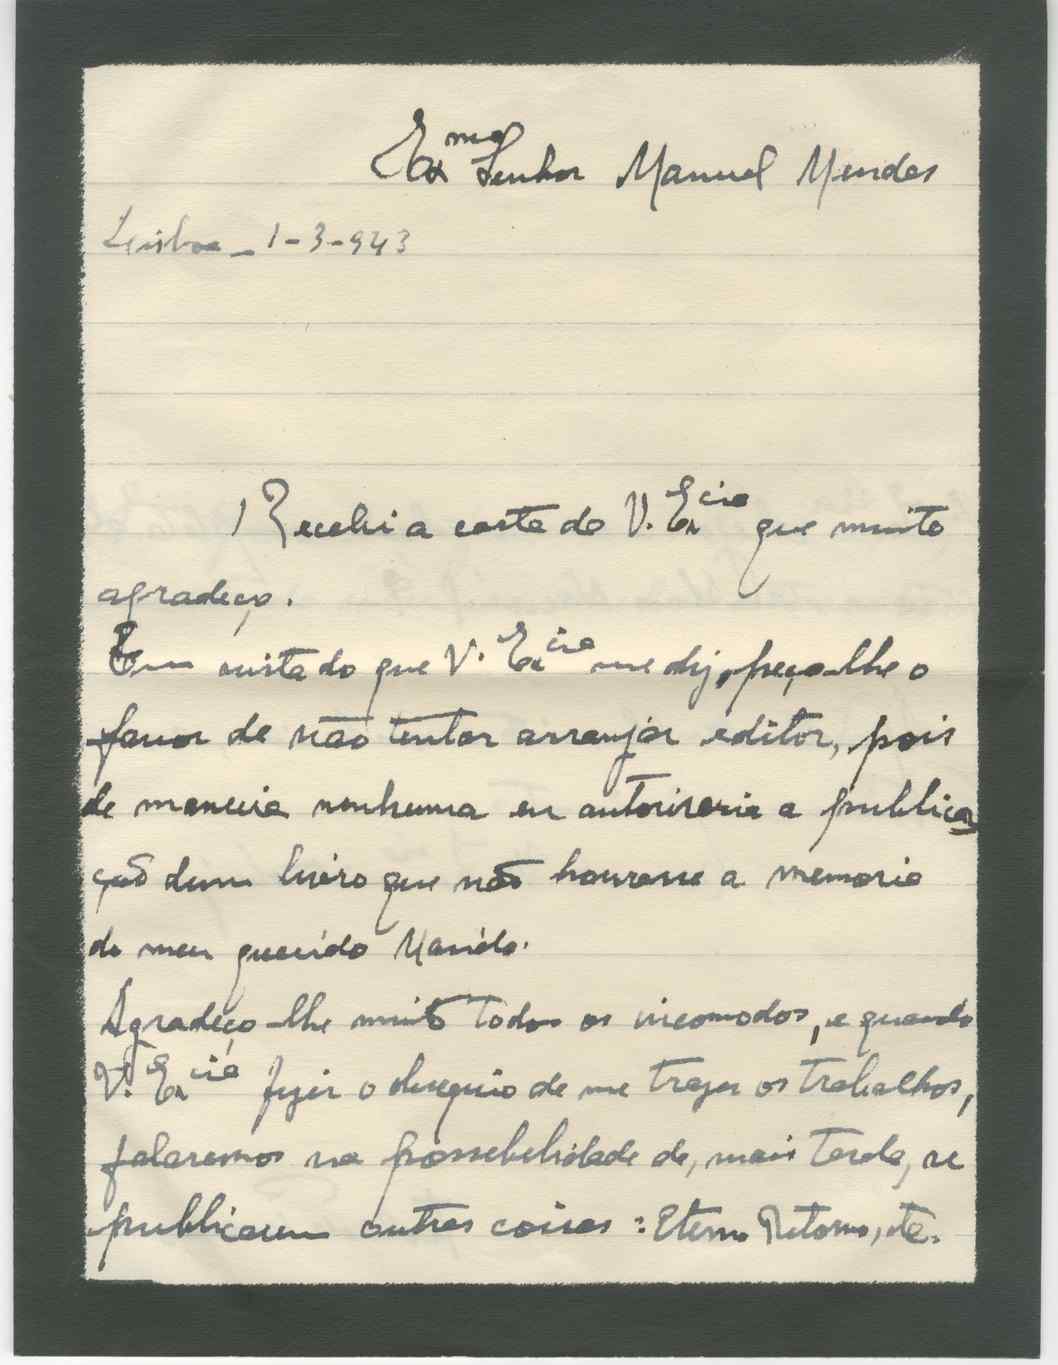 Exmo Senhor Manuel Mendes
Lisboa - 1-3-943
Recebi a carta de V. Excia que muito
agradeço.
Em vista do que V. Excia me diz, peço-lhe o
favor de não tentar arranjar editor, pois
de maneira nenhuma eu autorisaria a publica
ção dum livro que não honrasse a memoria
do meu querido Marido.
Agradeço-lhe muito todos os incomodos, e quando
V. Excia fizer o obsequio de me trazer os trabalhos,
falaremos na possebelidade de, mais tarde, se
publicarem outras coisas: Eterno Retorno, etc.